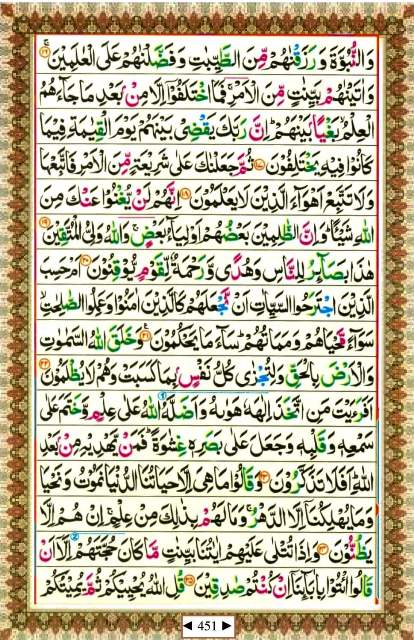 وَالنُّبُوَّةَ وَرَزَقْنٰهُمْ مِّنَ الطَّيِّبٰتِ وَفَضَّلْنٰهُمْ عَلَى الْعٰلَمِيْنَ ۚ‏﴿۱۶﴾
وَاٰتَيْنٰهُمْ بَيِّنٰتٍ مِّنَ الْاَمْرِ ۚ فَمَا اخْتَلَفُوْۤا اِلَّا مِنْۢ بَعْدِ مَا جَآءَهُمُ
الْعِلْمُ ۙ بَغْيًاۢ بَيْنَهُمْ ؕ اِنَّ رَبَّكَ يَقْضِىْ بَيْنَهُمْ يَوْمَ الْقِيٰمَةِ فِيْمَا
كَانُوْا فِيْهِ يَخْتَلِفُوْنَ ﴿۱۷﴾ ثُمَّ جَعَلْنٰكَ عَلٰى شَرِيْعَةٍ مِّنَ الْاَمْرِ فَاتَّبِعْهَا
وَلَا تَتَّبِعْ اَهْوَآءَ الَّذِيْنَ لَا يَعْلَمُوْنَ ﴿۱۸﴾ اِنَّهُمْ لَنْ يُّغْنُوْا عَنْكَ مِنَ
اللّٰهِ شَيْئًا ؕ وَاِنَّ الظّٰلِمِيْنَ بَعْضُهُمْ اَوْلِيَآءُ بَعْضٍ ۚ وَاللّٰهُ وَلِىُّ الْمُتَّقِيْنَ ﴿۱۹﴾
هٰذَا بَصَآٮِٕرُ لِلنَّاسِ وَهُدًى وَّرَحْمَةٌ لِّقَوْمٍ يُّوْقِنُوْنَ ﴿۲۰﴾ اَمْ حَسِبَ
الَّذِيْنَ اجْتَرَحُوا السَّيِّاٰتِ اَنْ نَّجْعَلَهُمْ كَالَّذِيْنَ اٰمَنُوْا وَعَمِلُوا الصّٰلِحٰتِ ۙ
سَوَآءً مَّحْيَاهُمْ وَمَمَاتُهُمْ ؕ سَآءَ مَا يَحْكُمُوْنَ ﴿۲۱﴾ وَخَلَقَ اللّٰهُ السَّمٰوٰتِ
وَالْاَرْضَ بِالْحَقِّ وَلِتُجْزٰى كُلُّ نَفْسٍۢ بِمَا كَسَبَتْ وَهُمْ لَا يُظْلَمُوْنَ ﴿۲۲﴾
اَفَرَءَيْتَ مَنِ اتَّخَذَ اِلٰهَهٗ هَوٰٮهُ وَاَضَلَّهُ اللّٰهُ عَلٰى عِلْمٍ وَّخَتَمَ عَلٰى
سَمْعِهٖ وَقَلْبِهٖ وَجَعَلَ عَلٰى بَصَرِهٖ غِشٰوَةً ؕ فَمَنْ يَّهْدِيْهِ مِنْۢ بَعْدِ
اللّٰهِ ؕ اَفَلَا تَذَكَّرُوْنَ ﴿۲۳﴾ وَقَالُوْا مَا هِىَ اِلَّا حَيَاتُنَا الدُّنْيَا نَمُوْتُ وَنَحْيَا
وَمَا يُهْلِكُنَاۤ اِلَّا الدَّهْرُ ؕ وَمَا لَهُمْ بِذٰلِكَ مِنْ عِلْمٍ ۚ اِنْ هُمْ اِلَّا
يَظُنُّوْنَ ﴿۲۴﴾ وَاِذَا تُتْلٰى عَلَيْهِمْ اٰيٰتُنَا بَيِّنٰتٍ مَّا كَانَ حُجَّتَهُمْ اِلَّاۤ اَنْ
قَالُوا ائْتُوْا بِاٰبَآٮِٕنَاۤ اِنْ كُنْتُمْ صٰدِقِيْنَ ﴿۲۵﴾ قُلِ اللّٰهُ يُحْيِيْكُمْ ثُمَّ يُمِيْتُكُمْ
◄ 451 ►